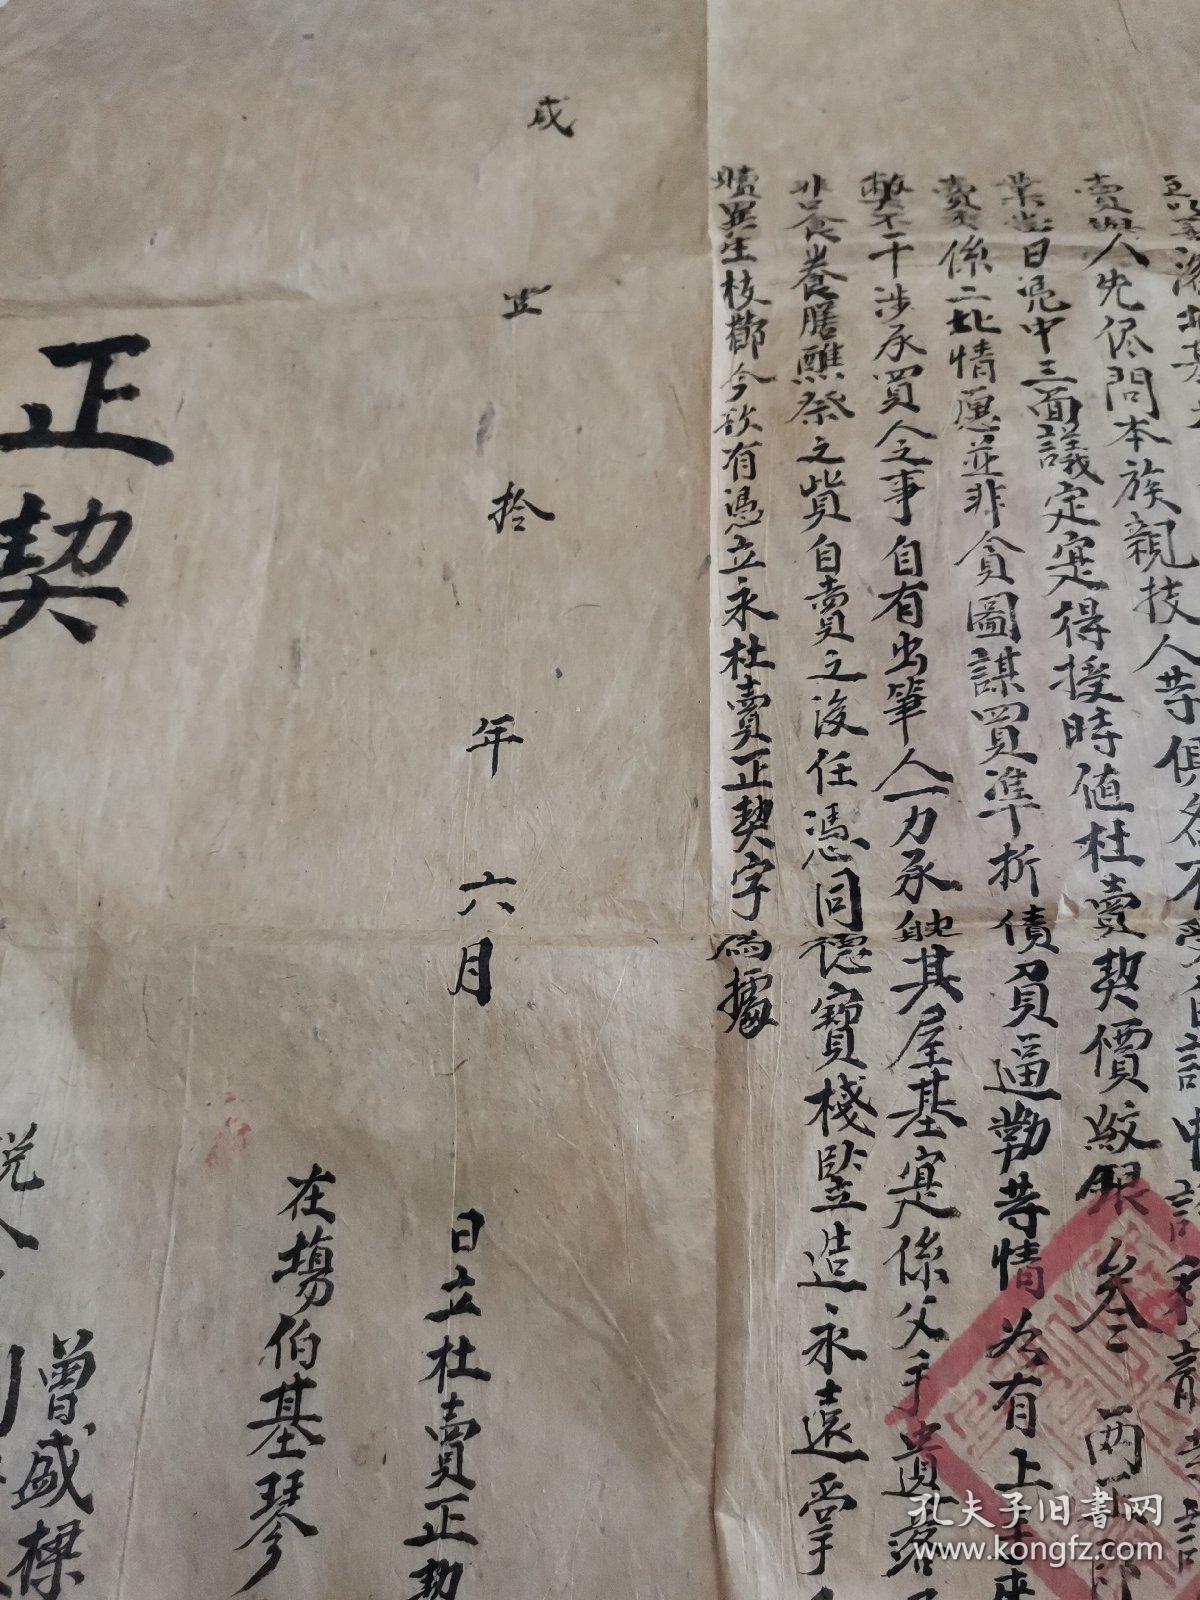 賣與人先侭問本族親技人等俱各不受
業當日憑中三面議定寔得授時値杜賣契價紋銀叁 両正
賣不係二比情愿並非貪圖謀買準折債負逼勒等情為有上手来
契不干涉承買人之事自有出筆人一力承躭其屋基寔係父手遺落
非食養膳醮祭之貲自賣之後任憑同德寶棧竪造永遠受手
贖異生枝節今欲有憑立永杜賣正契字為據
咸 豐 拾 年 六月 日立杜賣正契
在塲伯基琴
曾盛樑
正契
孔夫子旧書网
www.kongfz.com